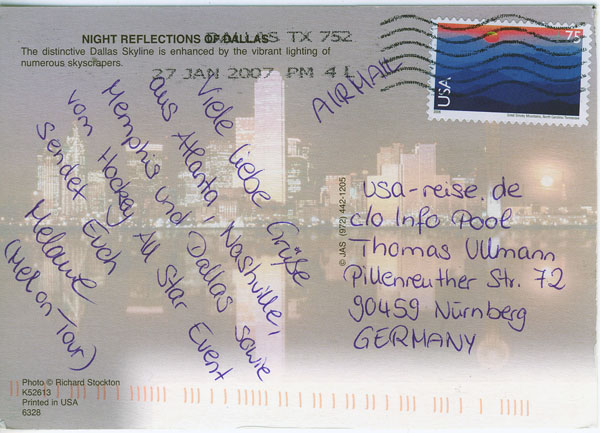 NIGHT REFLECTIONS OF DALLAS
The distinctive Dallas Skyline is enhanced by the vibrant lighting of
numerous skyscrapers.
DALLAS TX 752
27 JAN 2007 PM 4 L
AIRMAIL
75
USA
Viele liebe Grüße
aus Atlanta, Nashville,
Memphis und Dallas sowie
vom Hockey All Star Event
sendet Euch
Melanie
(Mel on Tour)
© JAS (972) 442-1205
usa-reise.de
c/o Info Pool
Thomas Ullmann
Pillenreuther Str. 72
90459 Nürnberg
GERMANY
Photo © Richard Stockton
K52613
Printed in USA
6328